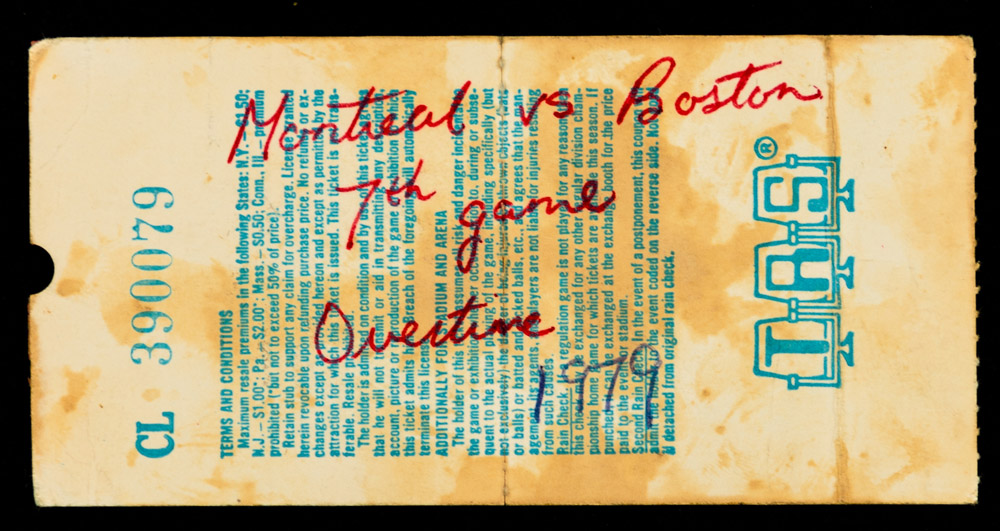 Montreal vs Boston
7th game
Overtime
1979
CL 390079
TERMS AND CONDITIONS
Maximum resale premiums in the following States: N.Y. – $1.50;
N.J. – $1.00*; Pa. – $2.00*; Mass. – $0.50; Conn., Ill. – premium
prohibited (*but not to exceed 50% of price).
Retain stub to support any claim for overcharge. License granted
herein revocable upon refunding purchase price. No refunds or ex-
changes except as provided hereon and except as permitted by the
attraction for which this ticket is issued. This ticket is not trans-
ferable. Resale
The holder is admitted on condition and by use of this ticket agrees
that he will not transmit or aid in transmitting any description,
account, picture or reproduction of the game or exhibition to which
this ticket admits him. Breach of the foregoing will automatically
terminate this license.
ADDITIONALLY FOR STADIUM AND ARENA
The holder of this assumes risk and danger incidental to
the game or exhibition occurring prior to, during or subse-
quent to the actual playing of the game, including specifically (but
not exclusively) the danger of being injured by thrown objects (bats
or balls) or thrown and kicked balls, etc., and agrees that the
agents, players are not liable for injuries resulting
from such causes.
Rain Check. If regulation game is not played for any reason
this check can be exchanged for any other regular division cham-
pionship home game for which tickets are on sale this season. If
punched, can be exchanged at the exchange booth for the price
paid to the event at stadium.
Second Rain Check. In the event of a postponement, this coupon will
admit to the event coded on the reverse side. Not
if detached from original rain check.
TRS®